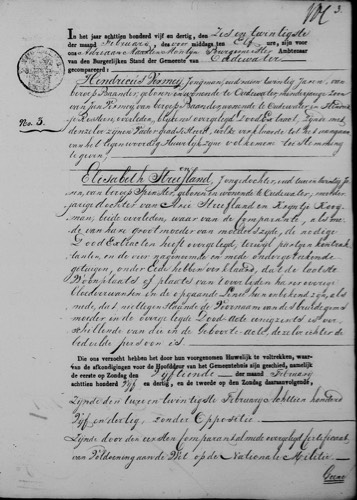 3.
In het jaar achttien honderd vijf en dertig, den Zes en twintigste
der maand Februarij, des voor middags ten Elf ure, zijn voor
ons Burgemeester Ambtenaar
van den Burgerlijken Stand der Gemeente van Oudewater
gecompareerd:
No. 5.
Hendricus Jongman, oud negen en twintig Jaren, van
beroep geboren en wonende te Oudewater, meerderjarige zoon
van Jan van beroep wonende te Oudewater en
overleden, blijkens overgelegd Dood Extract, zijnde met
denzelven zijnen Vader geadsisteerd, welke verklaarde tot het aangaan
van het tegenwoordig Huwelijk zijne volkomene toestemming
te geven;
Elisabeth Streefland, Jongedochter, oud twee en twintig Ja-
ren, van beroep Spinster, geboren en wonende te Oudewater, meerder-
jarige dochter van Arie Streefland en Krijntje Koog-
man, beide overleden, waar van de Comparante, als me-
de van hare grootmoeder van moederszijde, de nodige
Dood Extracten heeft overgelegd, terwijl partijen kontrak-
tanten, en de vier nagenoemde en mede ondergetekende
getuigen, onder Eede hebben verklaard, dat de laatste
Woonplaats of plaats van overlijden harer overige
bloedverwanten in de opgaande Linie hun onbekend zijn, als
mede, dat niettegenstaande de Voornaam van des bruidegoms
moeder in de overgelegde Dood-acte eenigzints is ver-
schillende van die in de Geboorte-acte, dezelve echter de
bedoelde persoon is.
Die ons verzocht hebben het door hun voorgenomen Huwelijk te voltrekken, waar-
van de afkondigingen voor de Hoofddeur van het Gemeentehuis zijn geschied, namelijk
de eerste op Zondag den Vijftiende der maand Februarij
achttien honderd Vijf en dertig, en de tweede op den Zondag daaraanvolgende,
Zijnde den twee en twintigsten Februarij Achttien honderd
Vijf en dertig, zonder Oppositie.
Zijnde door den eersten Comparant al mede overgelegd Certificaat
van Voldoening aan de Wet op de Nationale Militie.
Geene